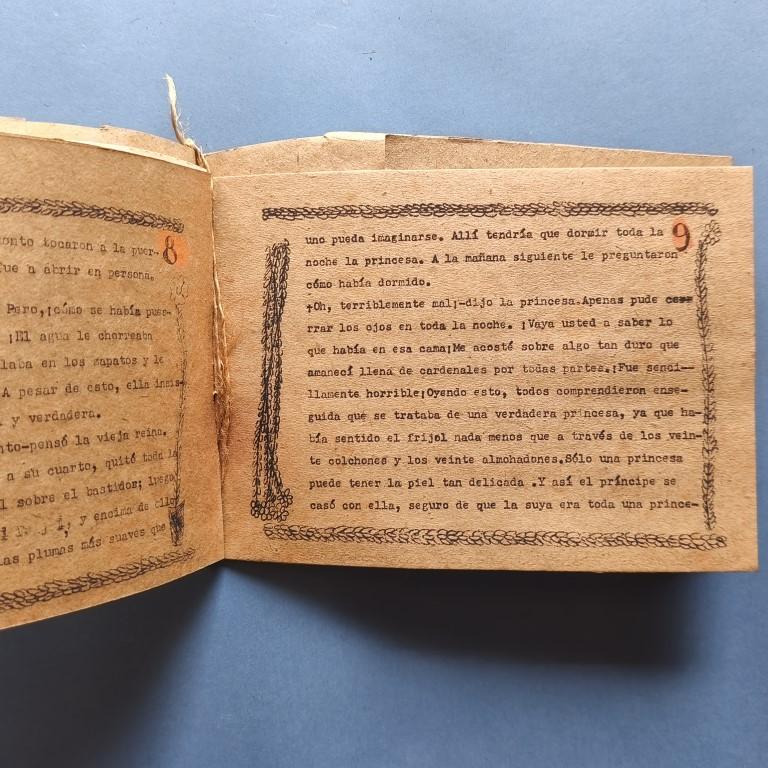 8
onto tocaron a la puer-
fue a abrir en persona.
Pero,¡cómo se había pues-
¡El agua le chorreaba
laba en los zapatos y le
A pesar de esto, ella insis-
y verdadera.
nto-pensó la vieja reina.
a su cuarto, quitó toda la
l sobre el bastidos; luego
y encima de ello
las plumas más suaves que
9
uno pueda imaginarse. Allí tendría que dormir toda la
noche la princesa. A la mañana siguiente le preguntaron
cómo había dormido.
¡Oh, terriblemente mal¡-dijo la princesa.Apenas pude ce-
rrar los ojos en toda la noche. ¡Vaya usted a saber lo
que había en esa cama¡Me acosté sobre algo tan duro que
amanecí llena de cardenales por todas partes.¡Fue senci--
llamente horrible¡Oyendo esto, todos comprendieron ense-
guida que se trataba de una verdadera princesa, ya que ha-
bía sentido el frijol nada menos que a través de los vein-
te colchones y los veinte almohadones.Sólo una princesa
puede tener la piel tan delicada .Y así el príncipe se
casó con ella, seguro de que la suya era toda una prince-